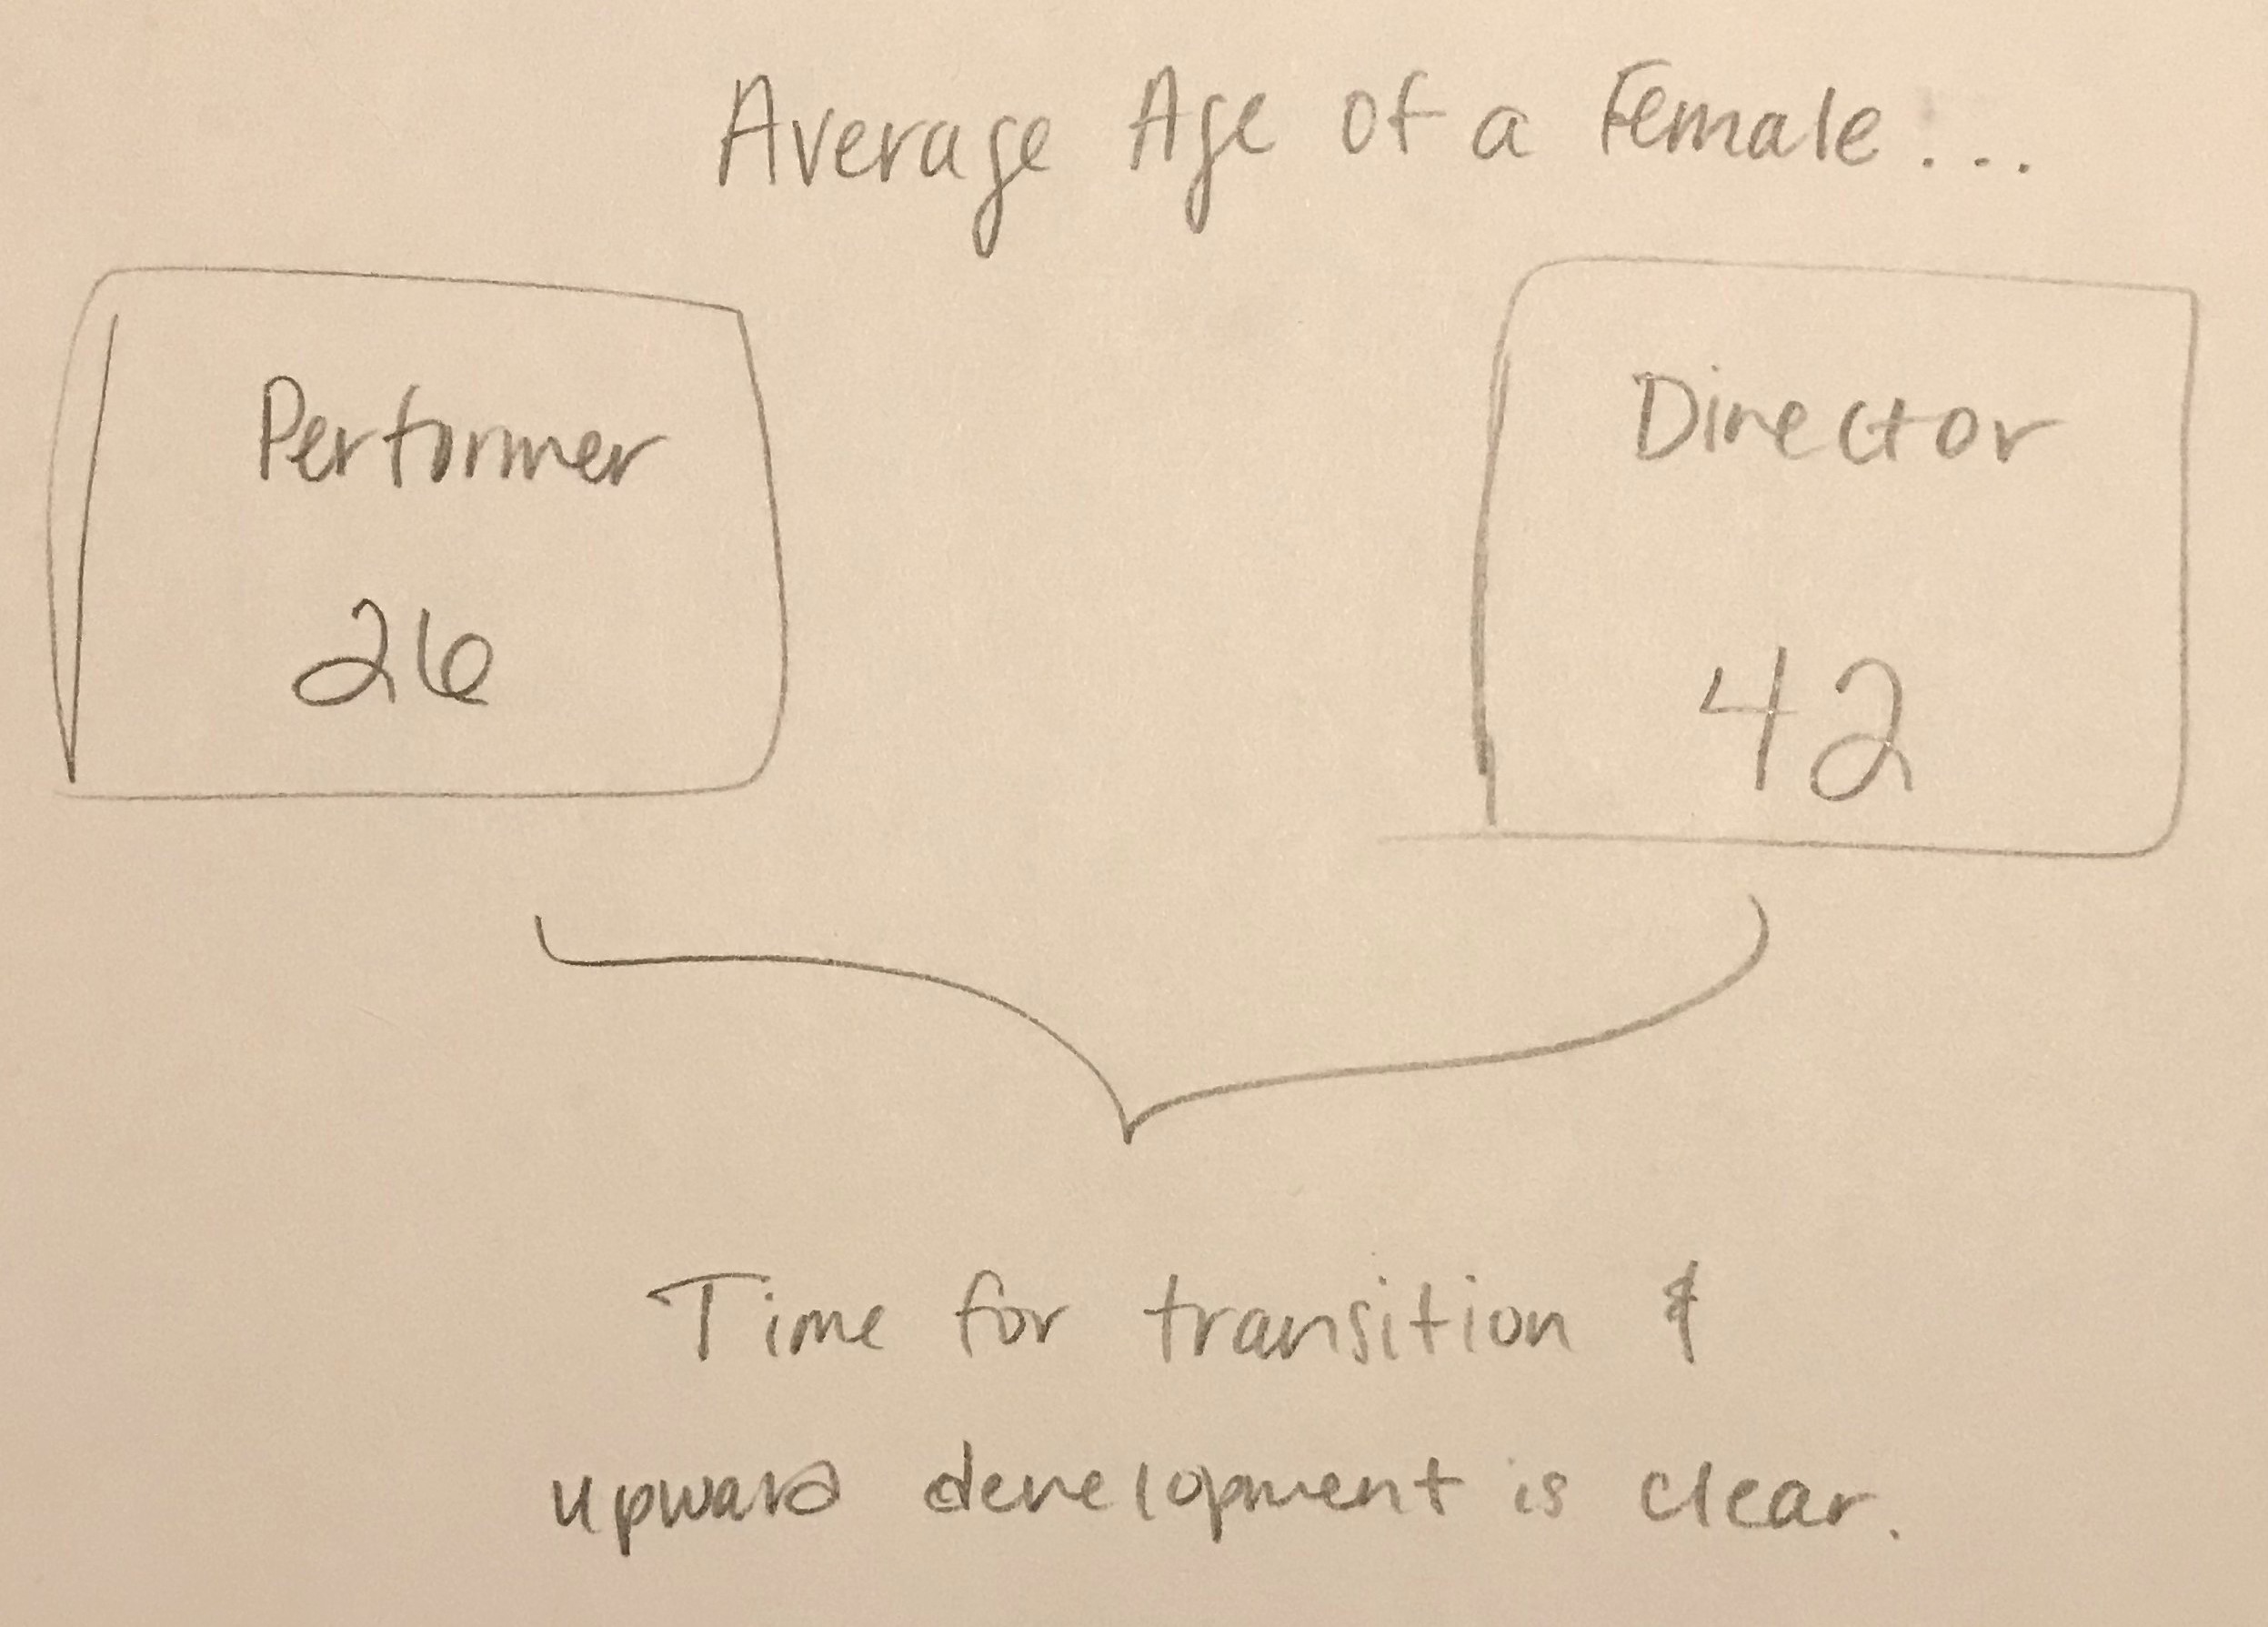 Average Age of a Female...
Performer
26
Director
42
Time for transition &
upward development is clear.